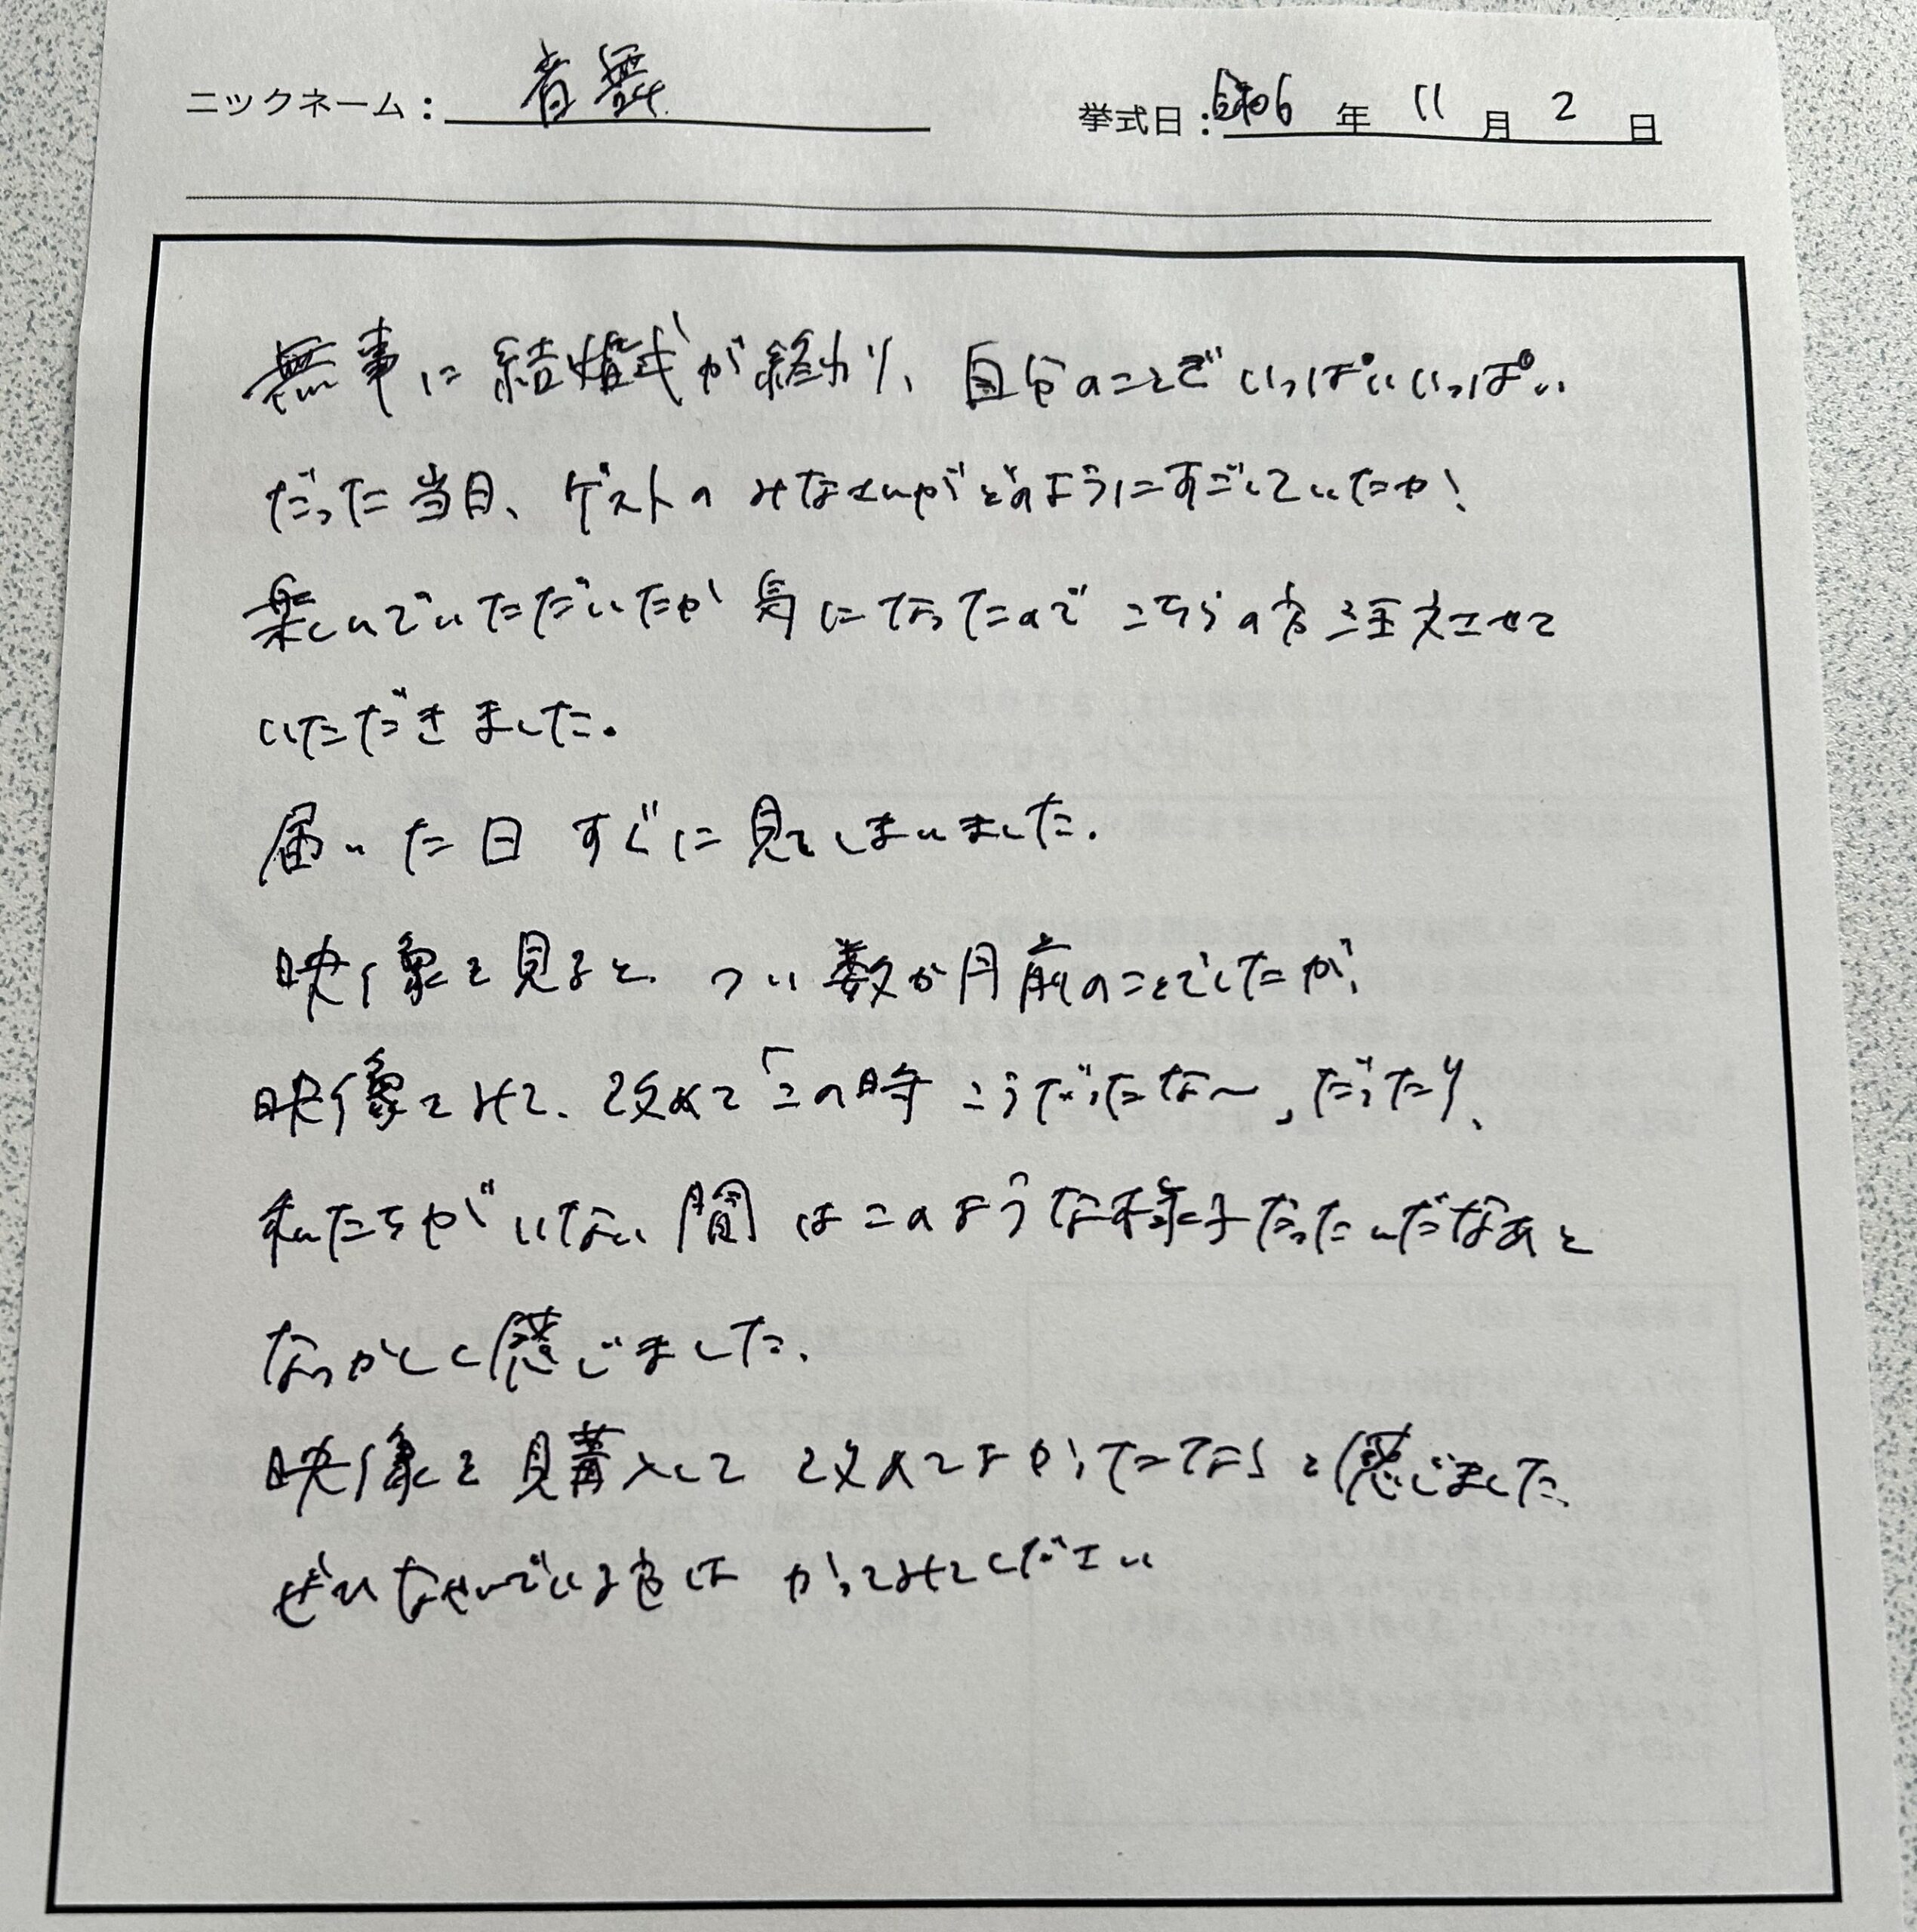 ニックネーム：青舞
挙式日：令和6年11月2日
無事に結婚式が終わり、自分のことでいっぱいいっぱい
だった当日、ゲストのみなさんがどのようにすごしていたか、
楽しんでいただいたか気になったのでこちらの方注文させて
いただきました。
届いた日すぐに見てしまいました。
映像を見ると、つい数か月前のことでしたが、
映像をみて、改めて「この時こうだったな〜」だったり、
私たちがいない間はこのような様子だったんだなあと
なつかしく感じました。
映像を購入して改めてよかったなと感じました。
ぜひなやんでいる方はかってみてください